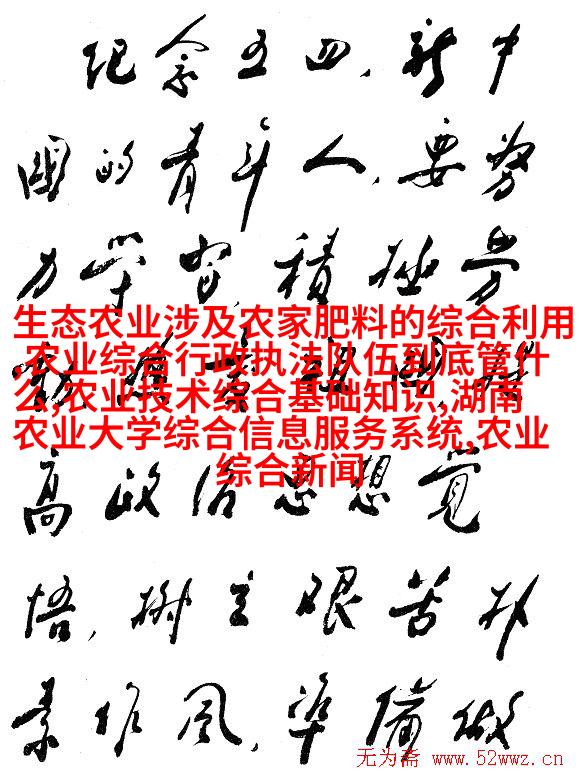 纪念五四，新中
國的青年人，要努
力学習，積極劳
生态农业涉及农家肥料的综合利用
,农业综合行政执法队伍到底管什
么,农业技术综合基础知识,湖南
农业大学综合信息服务系统,农业
综合新闻
高政治思想覚
悟，树立艰苦朴
素作风，準備做
无为斋 www.52wwz.cn